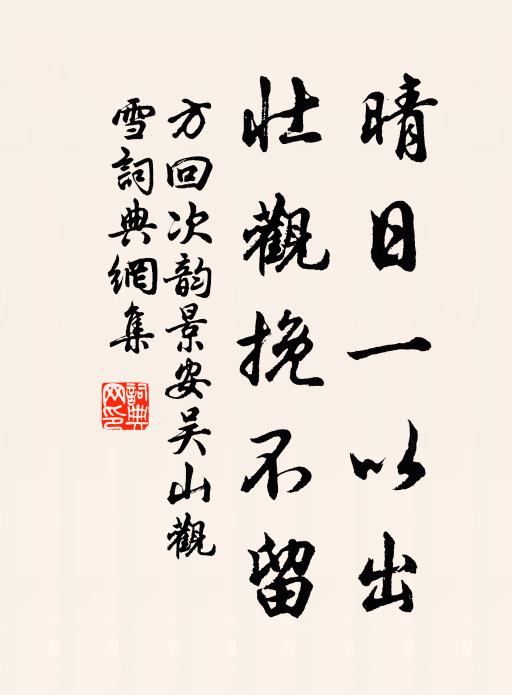 晴日一以出
壯觀挽不留
方回次韵景安吴山觀
雪詞典網集
詞典
网印